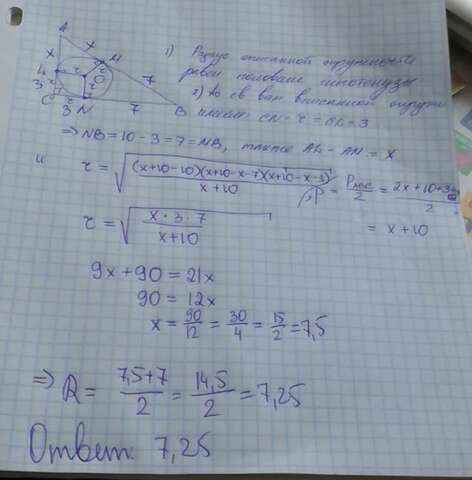 A
x
x
M
7
L
3
r
O
r
r
C
3
N
7
B
1) Радиус описанной окружности
равен половине гипотенузы
2) По св вам вписанной окружн
CN = r = CL = 3
⇒ NB = 10 - 3 = 7 = MB, также AL = AM = x
r = √((x+10-10)(x+10-x-7)(x+10-x-3)/(x+10)), P = Pлвс/2 = (2x+10+3+7)/2
= x + 10
r = √(x · 3 · 7/(x+10))
9x + 90 = 21x
90 = 12x
x = 90/12 = 30/4 = 15/2 = 7,5
⇒ R = (7,5+7)/2 = 14,5/2 = 7,25
Ответ: 7,25